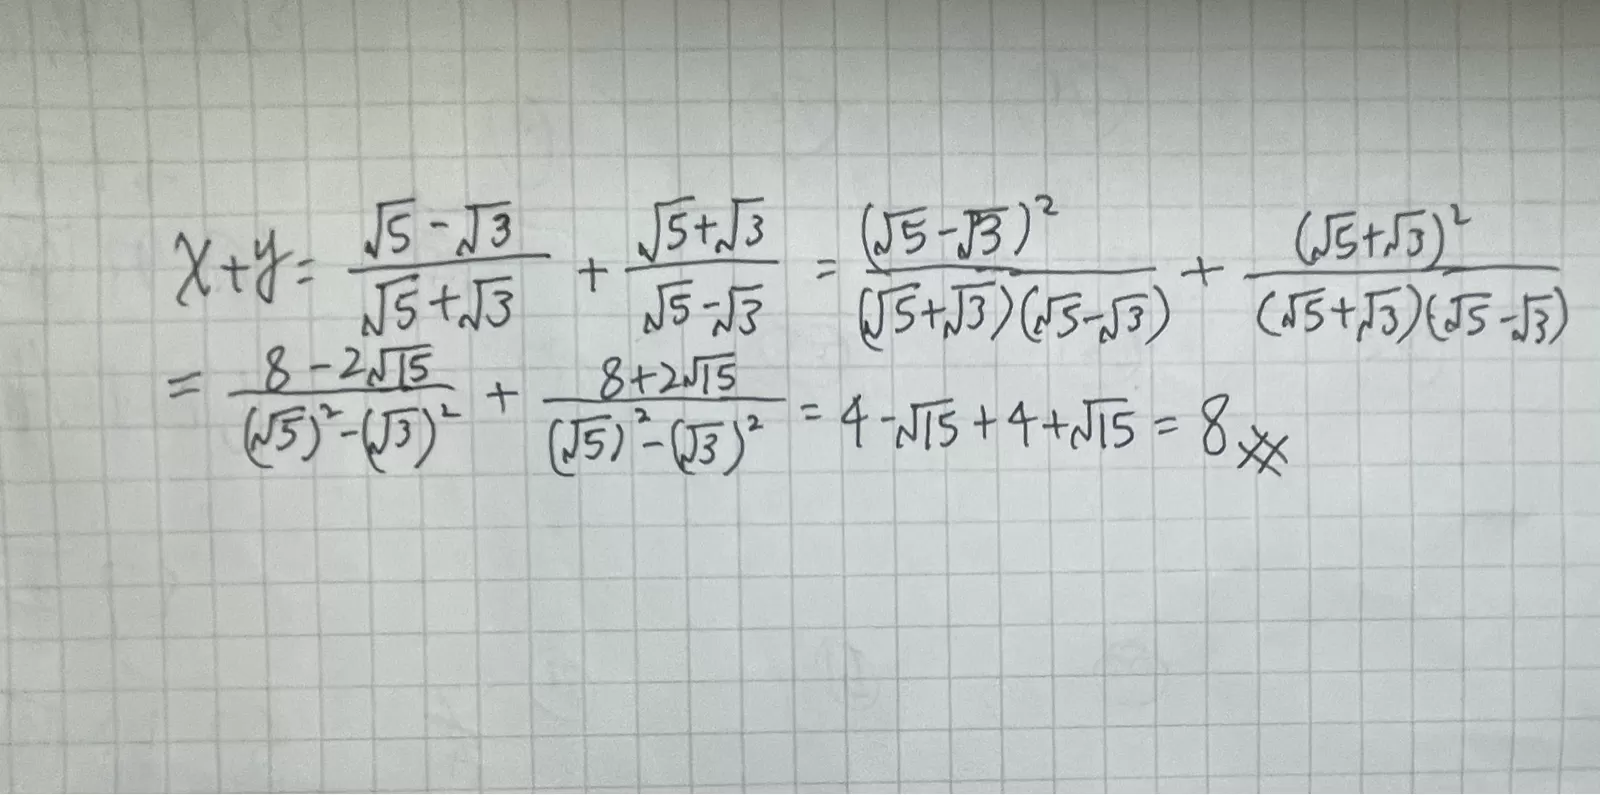 x+y = \frac{\sqrt{5}-\sqrt{3}}{\sqrt{5}+\sqrt{3}} + \frac{\sqrt{5}+\sqrt{3}}{\sqrt{5}-\sqrt{3}} = \frac{(\sqrt{5}-\sqrt{3})^2}{(\sqrt{5}+\sqrt{3})(\sqrt{5}-\sqrt{3})} + \frac{(\sqrt{5}+\sqrt{3})^2}{(\sqrt{5}+\sqrt{3})(\sqrt{5}-\sqrt{3})}
= \frac{8-2\sqrt{15}}{(\sqrt{5})^2-(\sqrt{3})^2} + \frac{8+2\sqrt{15}}{(\sqrt{5})^2-(\sqrt{3})^2} = 4-\sqrt{15}+4+\sqrt{15} = 8